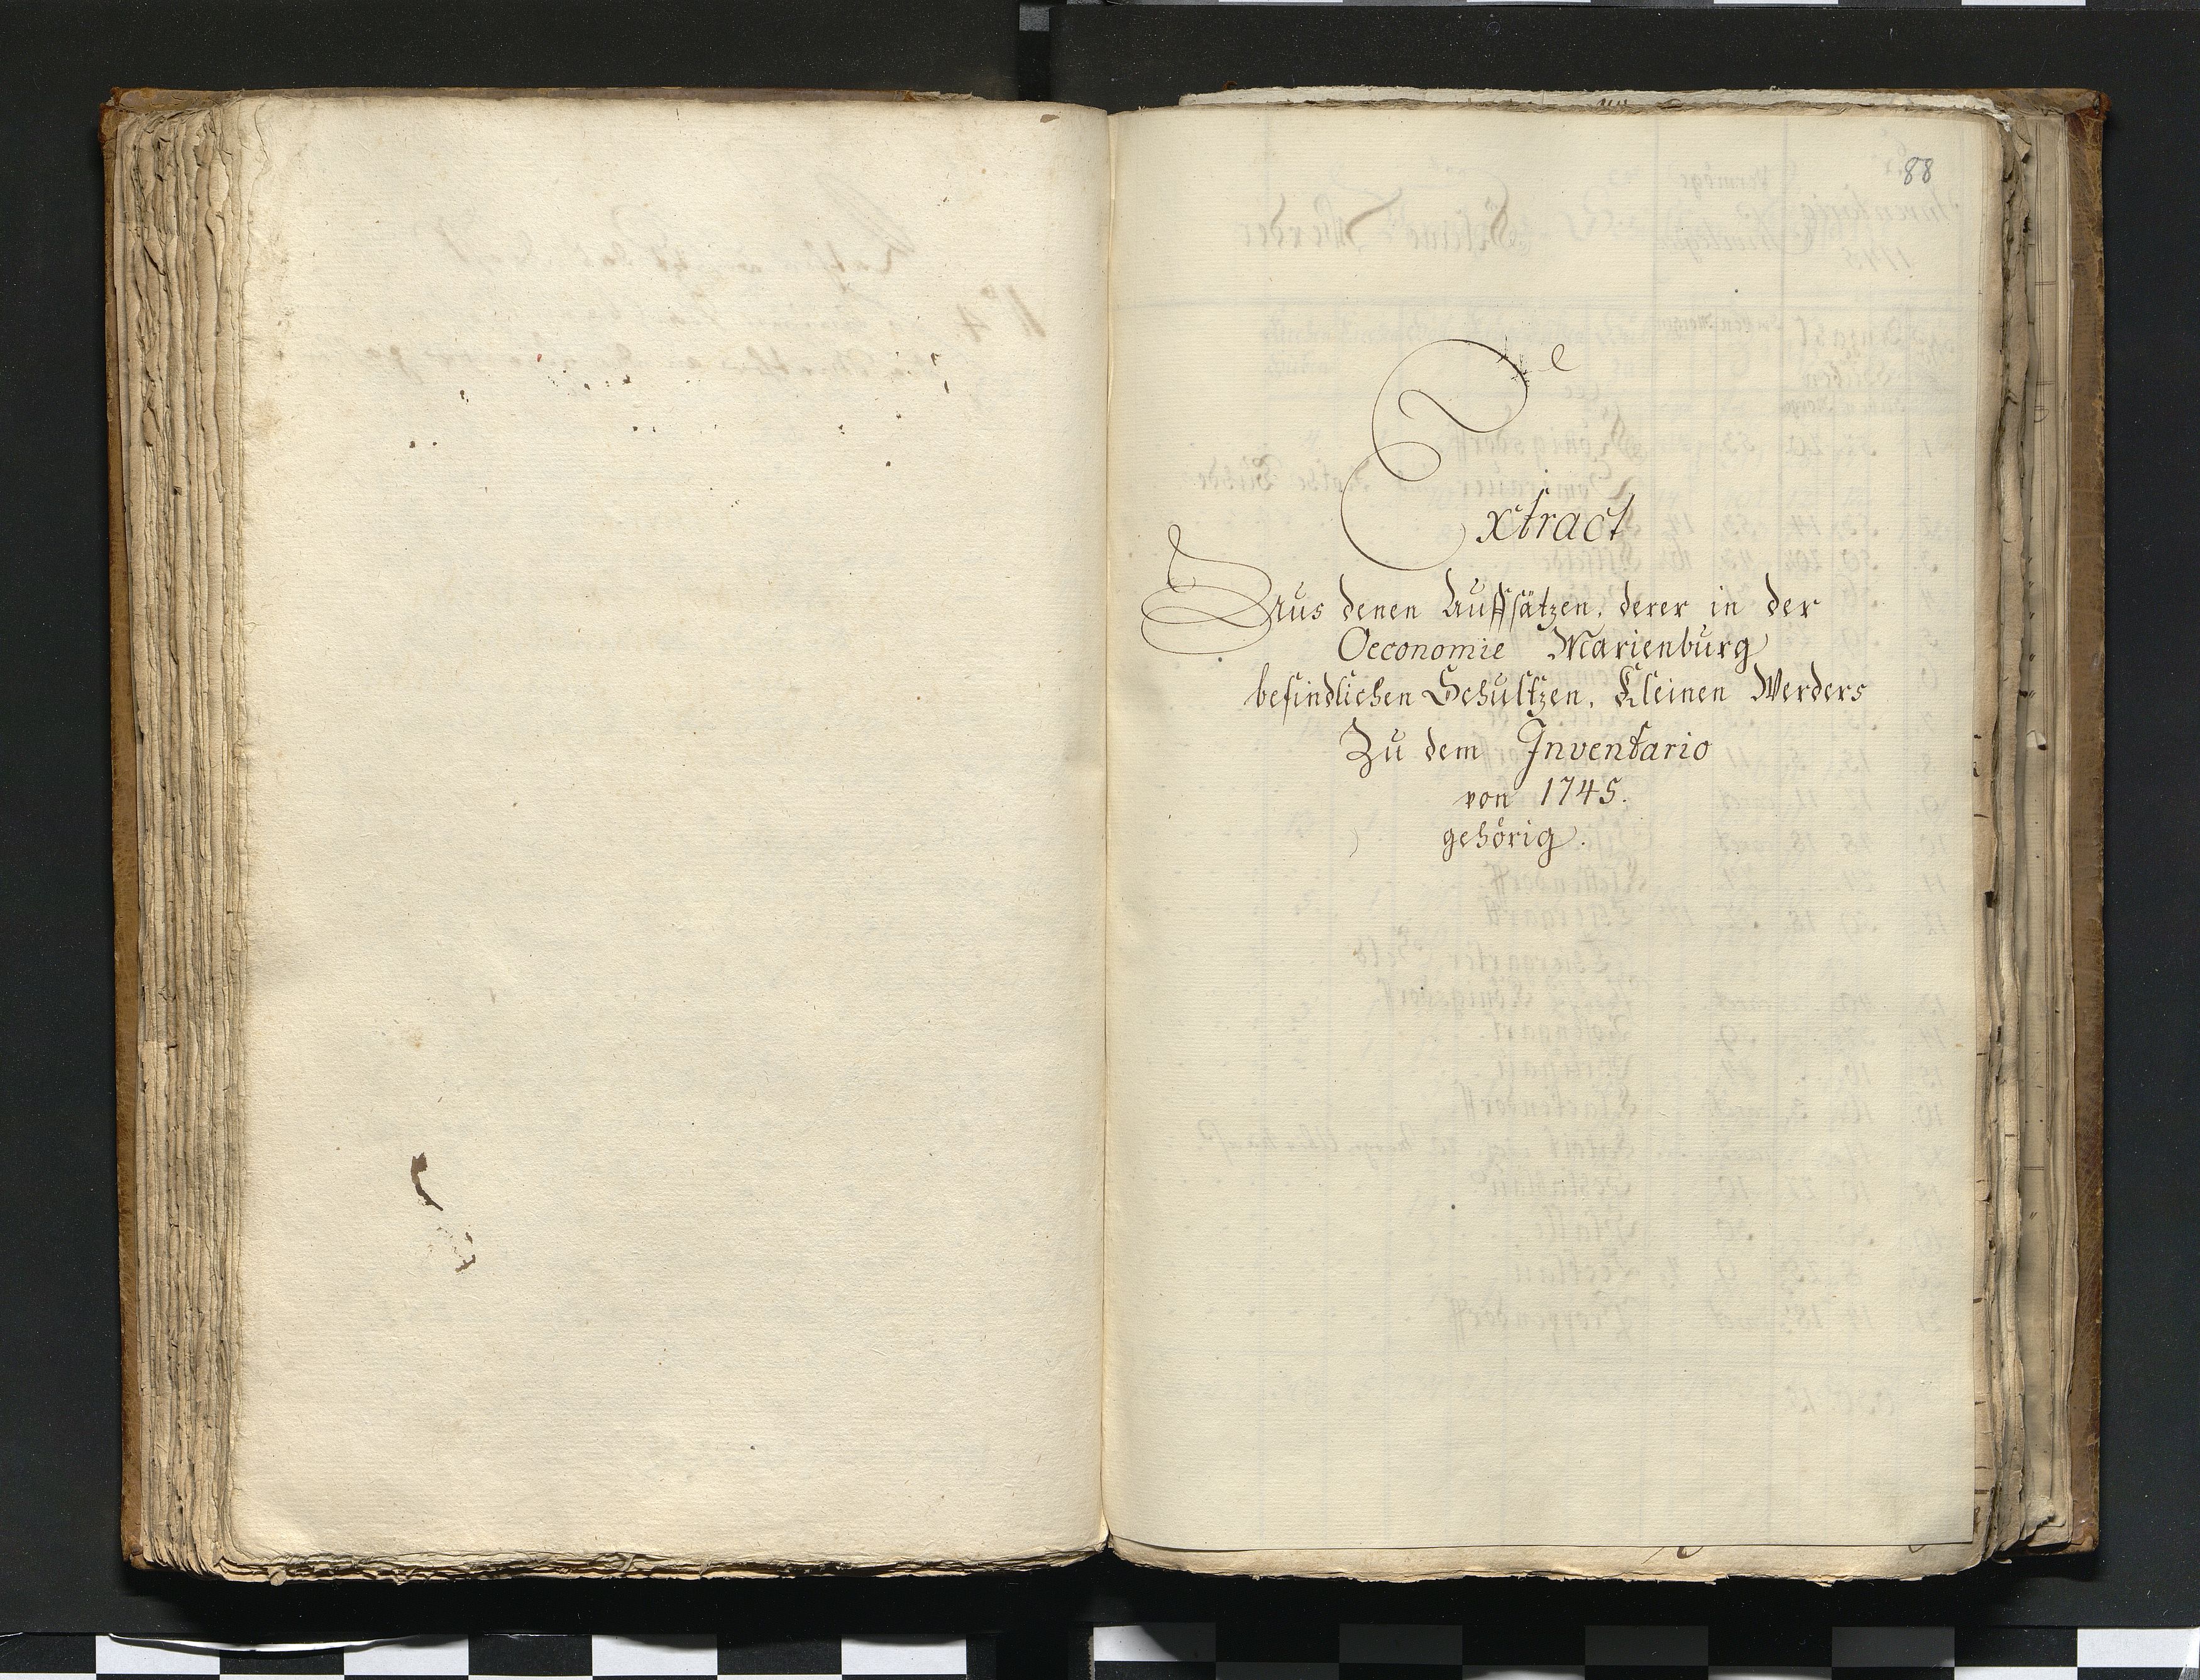 88
Extract
Aus denen Auffsätzen, derer in der
Oeconomie Marienburg
befindlichen Schultzen, Kleinen Werders
Zu dem Inventario
von 1745.
gehörig.